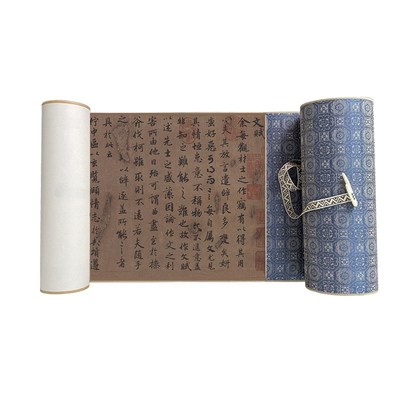 文賦
余每觀材士之作竊有以得其用
心夫其放言遣辭良多變矣妍
蚩好惡可得而言每自屬文尤見
其情恒患意不稱物文不逮意蓋
非知之難能之難也故作文賦
以述先士之盛藻因論作文之利
害所由他日殆可謂曲盡其妙至於操
斧伐柯雖取則不遠若夫隨手
之變良難以辭逮蓋所能言者
具於此云
佇中區以玄覽頤情志於典墳遵